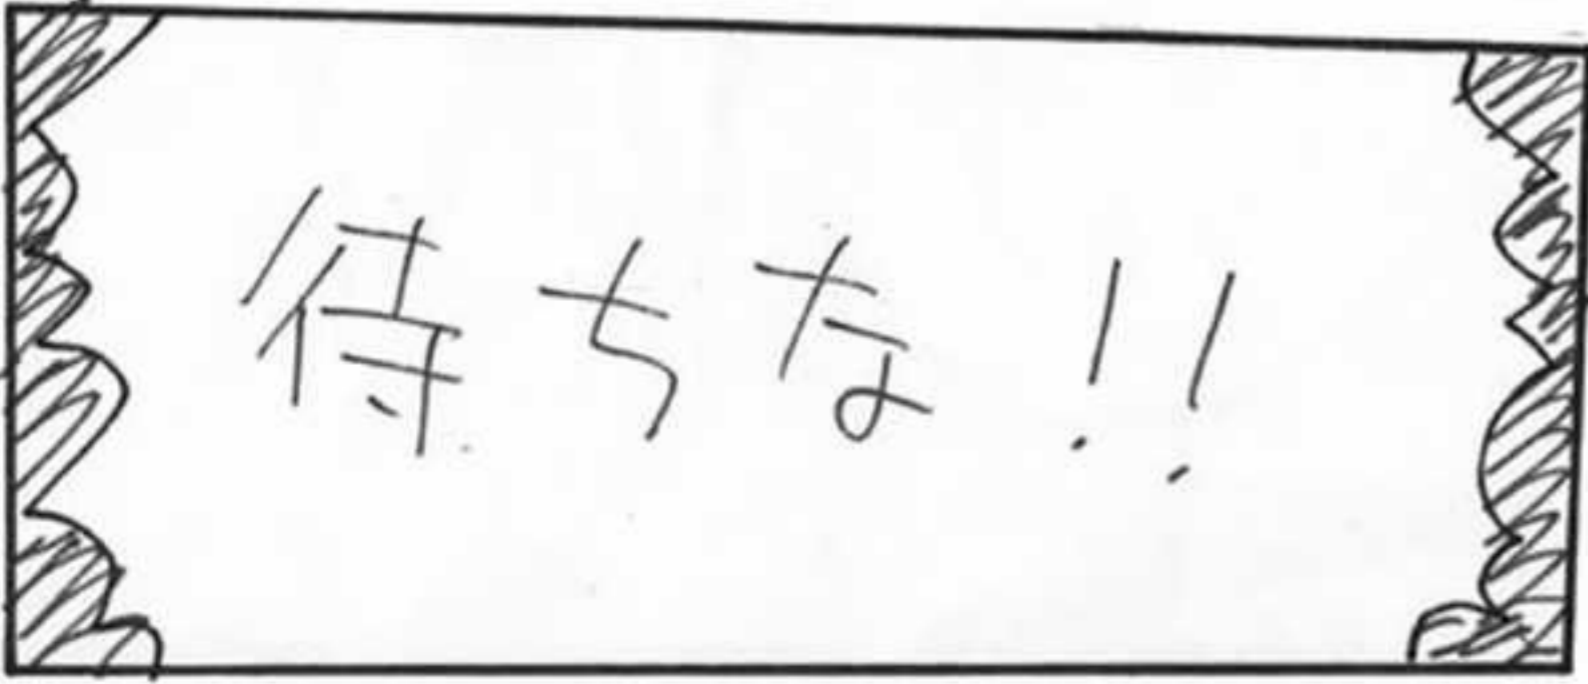 待ちな!!